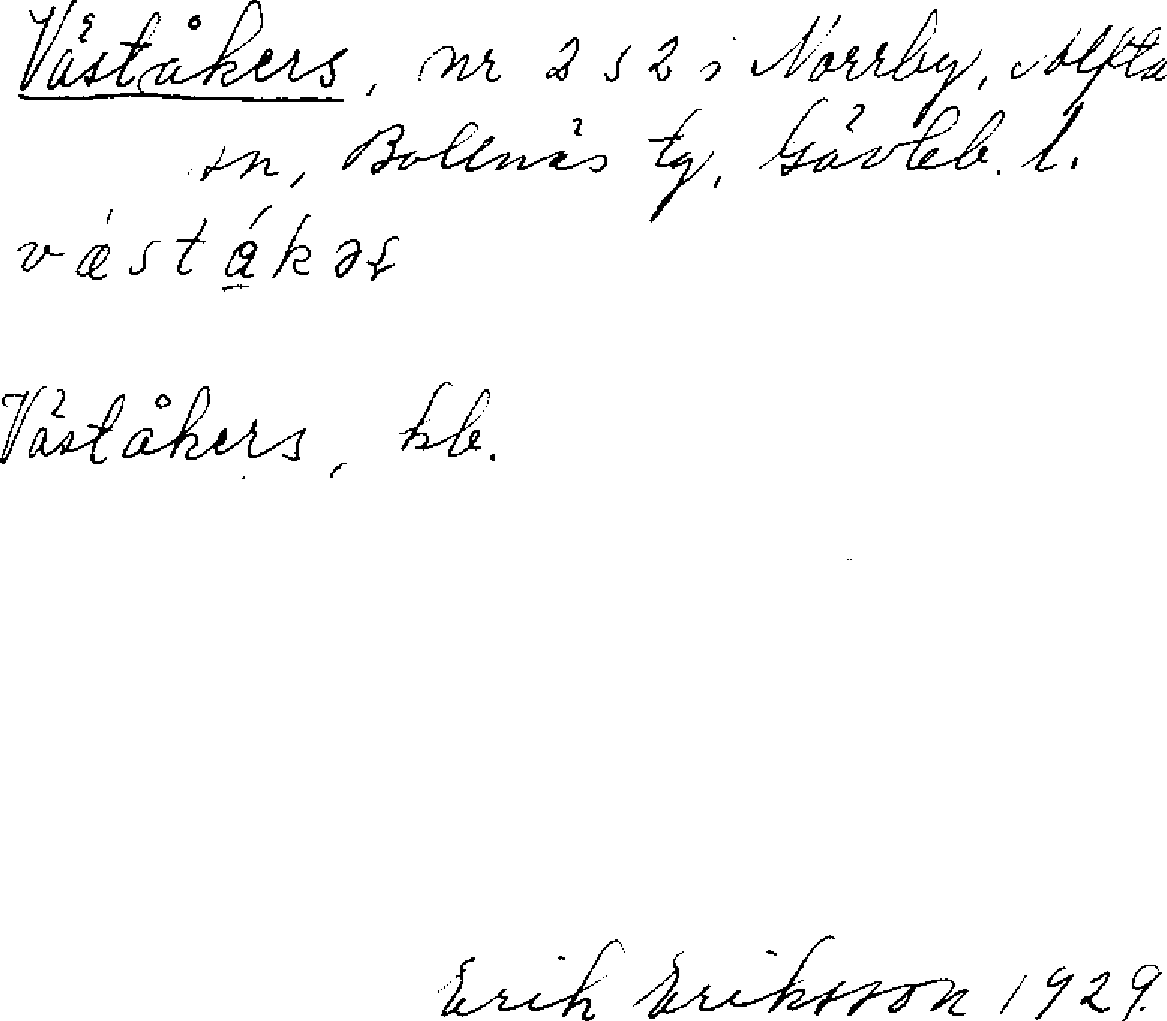 Väståkers, nr 2 s 2 i Norrby, Alfta
sn, Bollnäs tg, Gävleb. l.
vǽstá̱kəʂ
Väståkers, kb.
Erik Eriksson 1929.